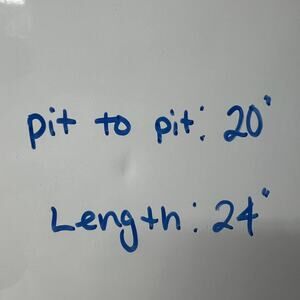 pit to pit: 20"
Length: 24"